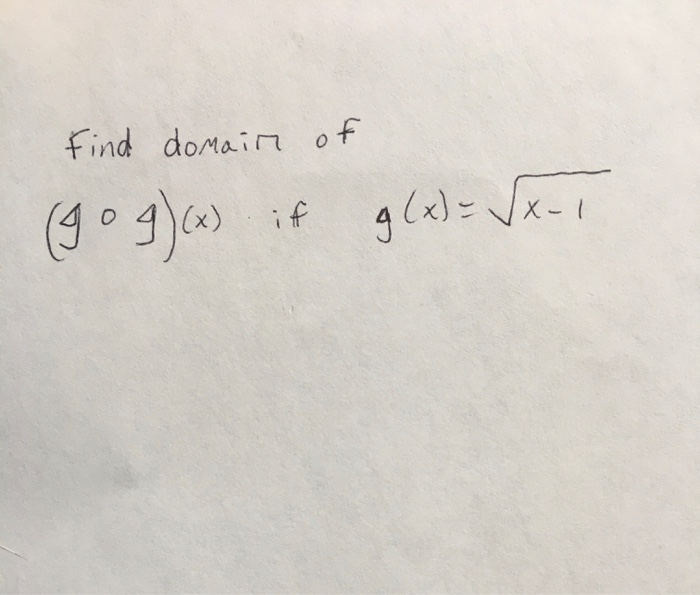 Find domain of
(g ∘ g)(x) if g(x) = √x-1